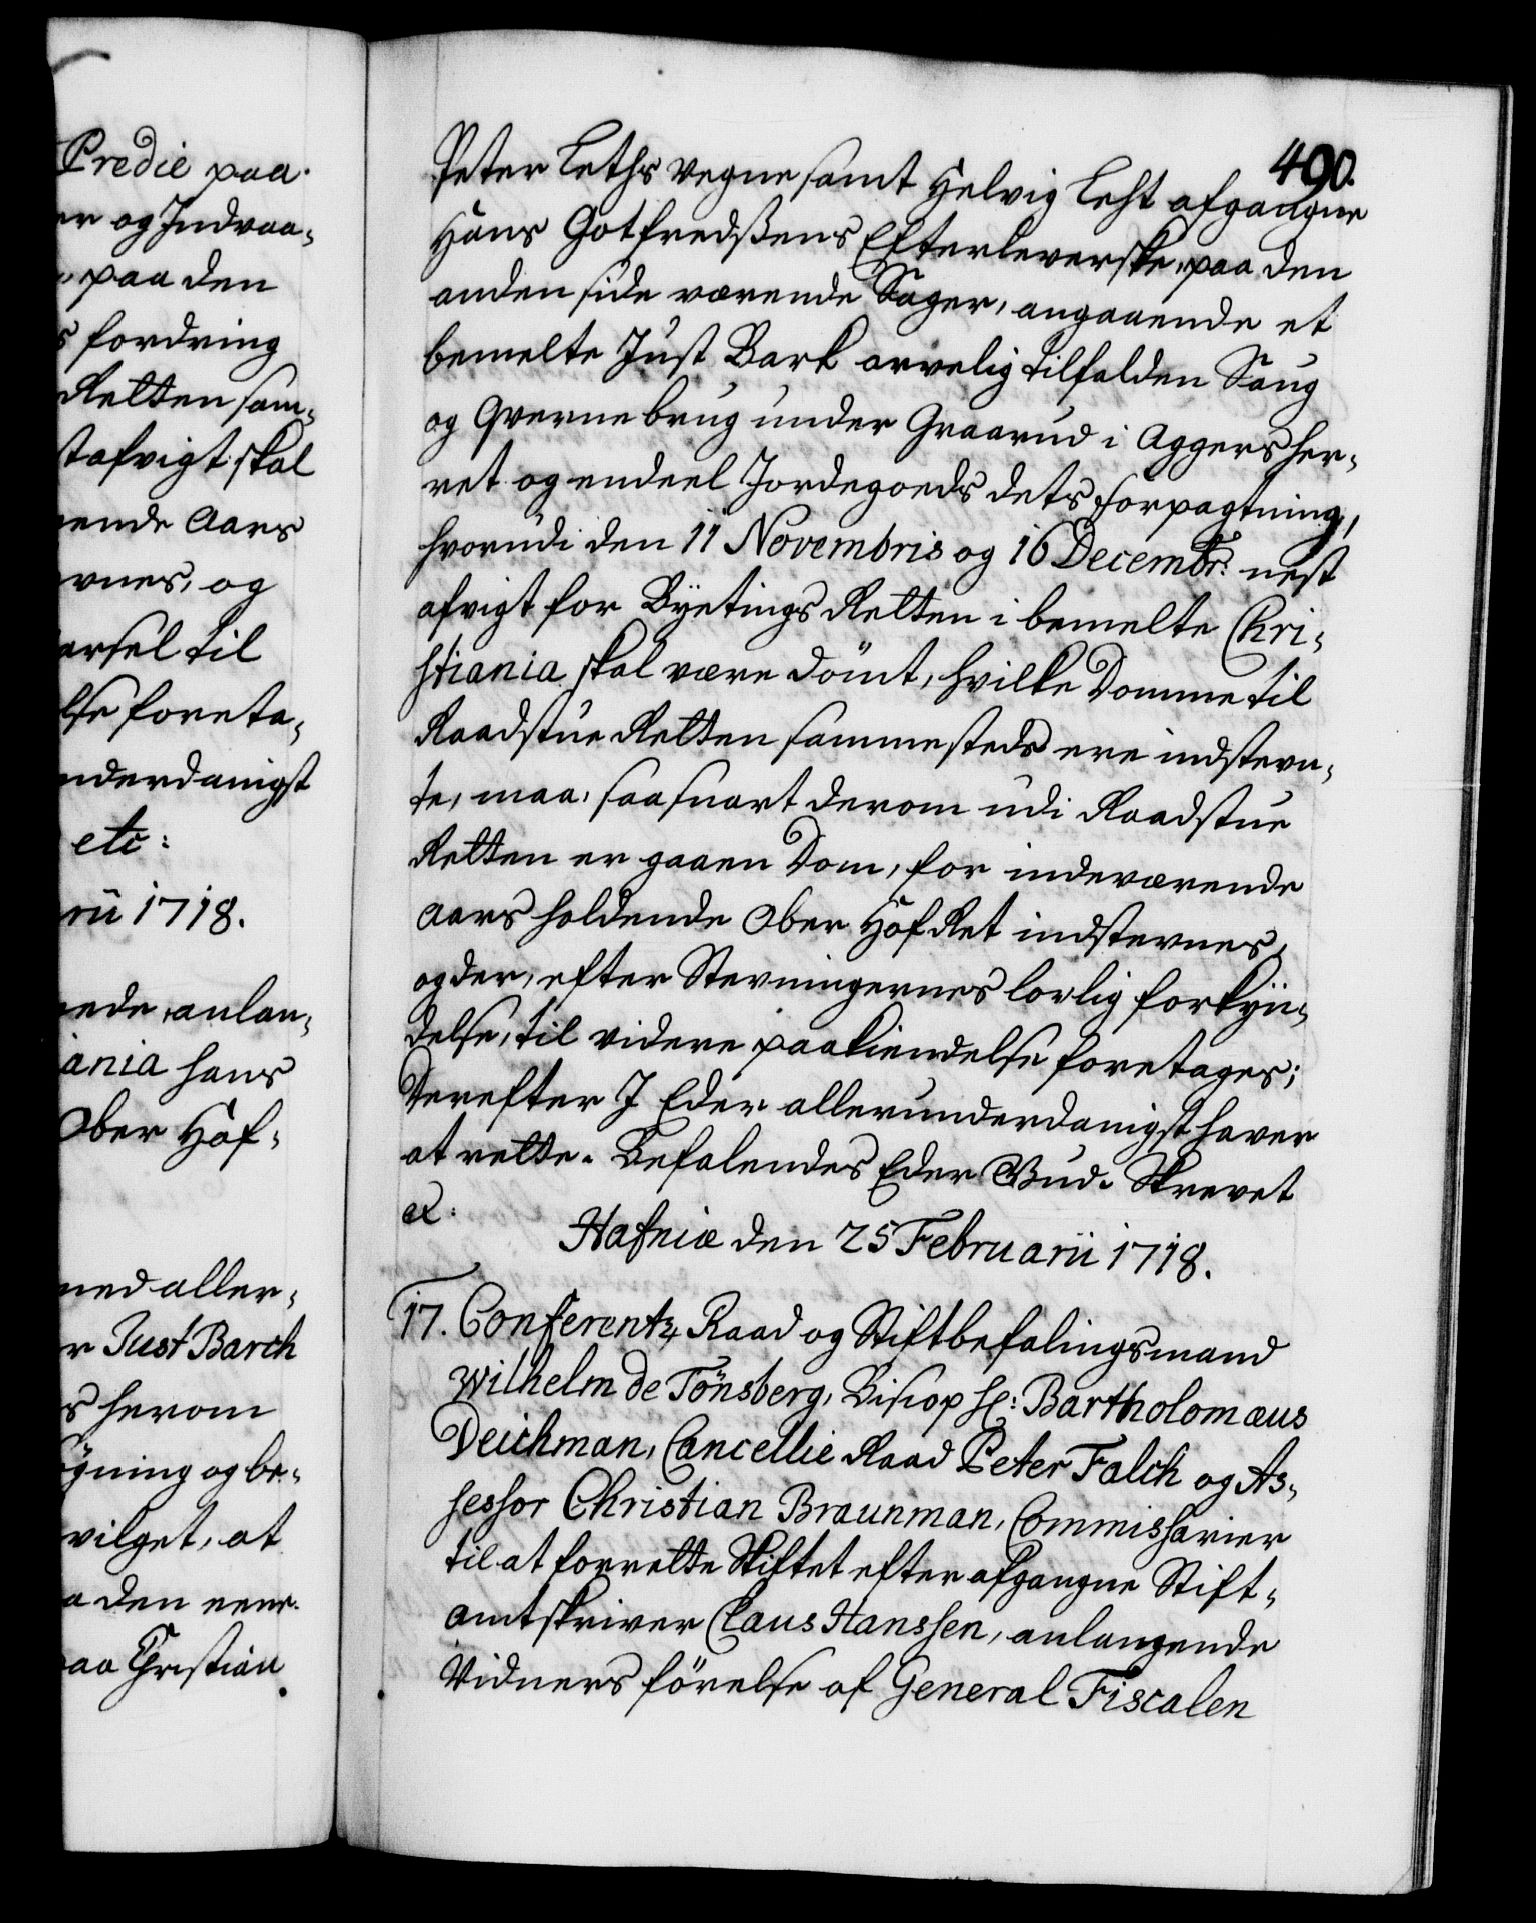 Predie paa
er og Indvaa-
, paa den
s fordring
Retten sam-
st afvigt skal
ende Aars
vnes, og
arsel til
lse foreta-
nderdanigst
etc:
rii 1718.
ede, anlan-
ania hans
Ober Hof-
med aller-
r Just Barch
s herom
gning og be-
vilget, at
a den eene
aa Christian
490.
Peter Leths vegne samt Helvig Leht afgangne
Hans Gotfredßens Efterleverske, paa den
anden side værende Sager, angaaende et
bemelte Just Bark arvelig tilfalden Saug
og Qvernebrug under Graarud i Aggersher-
ret og endeel Jordegoeds dets forpagtning,
hvorudi den 11 Novembris og 16 Decembr: nest
afvigt for Byetings Retten i bemelte Chri-
stiania skal være dömt, hvilke Domme til
Raadstue Retten sammesteds ere indstevn-
te, maa, saasnart derom udi Raadstue
Retten er gaaen Dom, for indeværende
Aars holdende Ober Hof Ret indstevnes,
og der, efter Stevningernes lovlig forkyn-
delse, til videre paakiendelse foretages;
Derefter I Eder allerunderdanigst haver
at rette. Befalendes Eder Gud. Skrevet
etc.
Hafniæ den 25 Februarii 1718.
17. Conferentz Raad og Stiftbefalingsmand
Wilhelm de Tönsberg, Biscop Hr: Bartholomæus
Deichman, Cancellie Raad Peter Falch og As-
sessor Christian Braunman, Commissarier
til at forrette Skiftet efter afgangne Stift-
amtskriver Claus Hanssen, anlangende
Vidners förelse af General Fiscalen